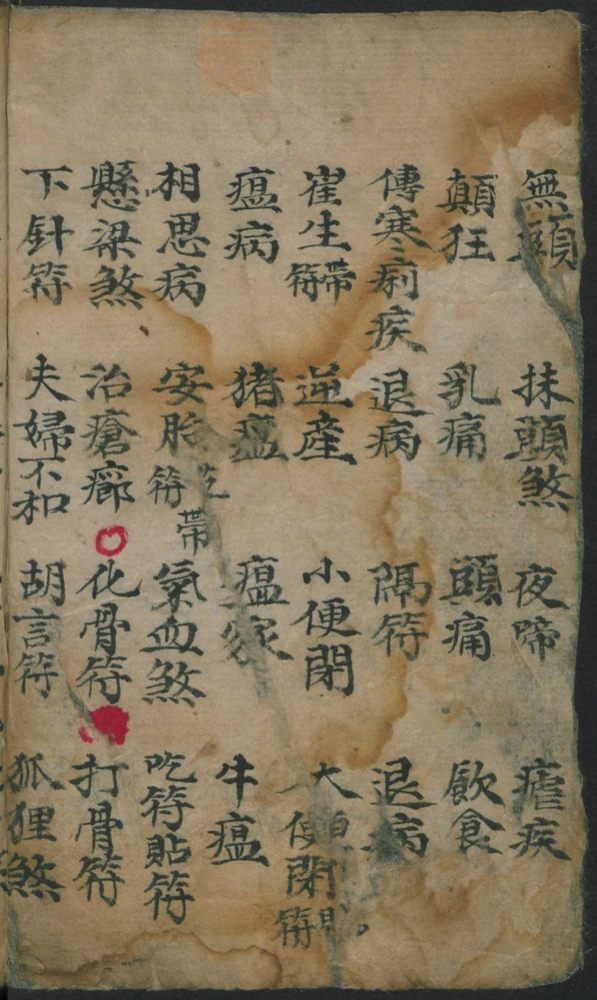 無 抹頭煞 夜啼 瘧疾
顛狂 乳痛 頭痛 飲食
傳寒〻痢疾 退病 隔符 退病
崔生帶符 逆產 小便閉 大便閉符
瘟病 猪瘟 瘟 牛瘟
相思病 安胎符 帶 氣血煞 吃符貼符
懸梁煞、 治瘡 化骨符 打骨符
下針符 夫婦不和 胡言符 狐狸煞